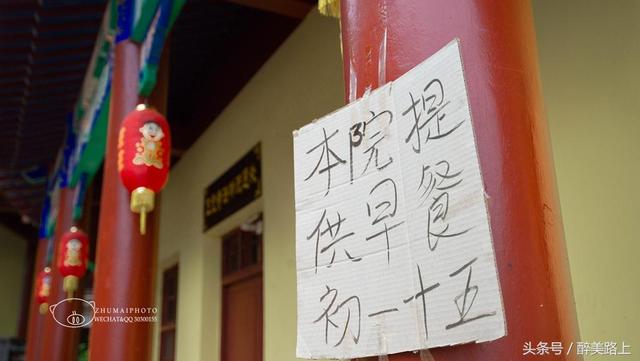 本院提
供早餐
初一十五
ZHUMAIPHOTO
头条号 / 醉美路上